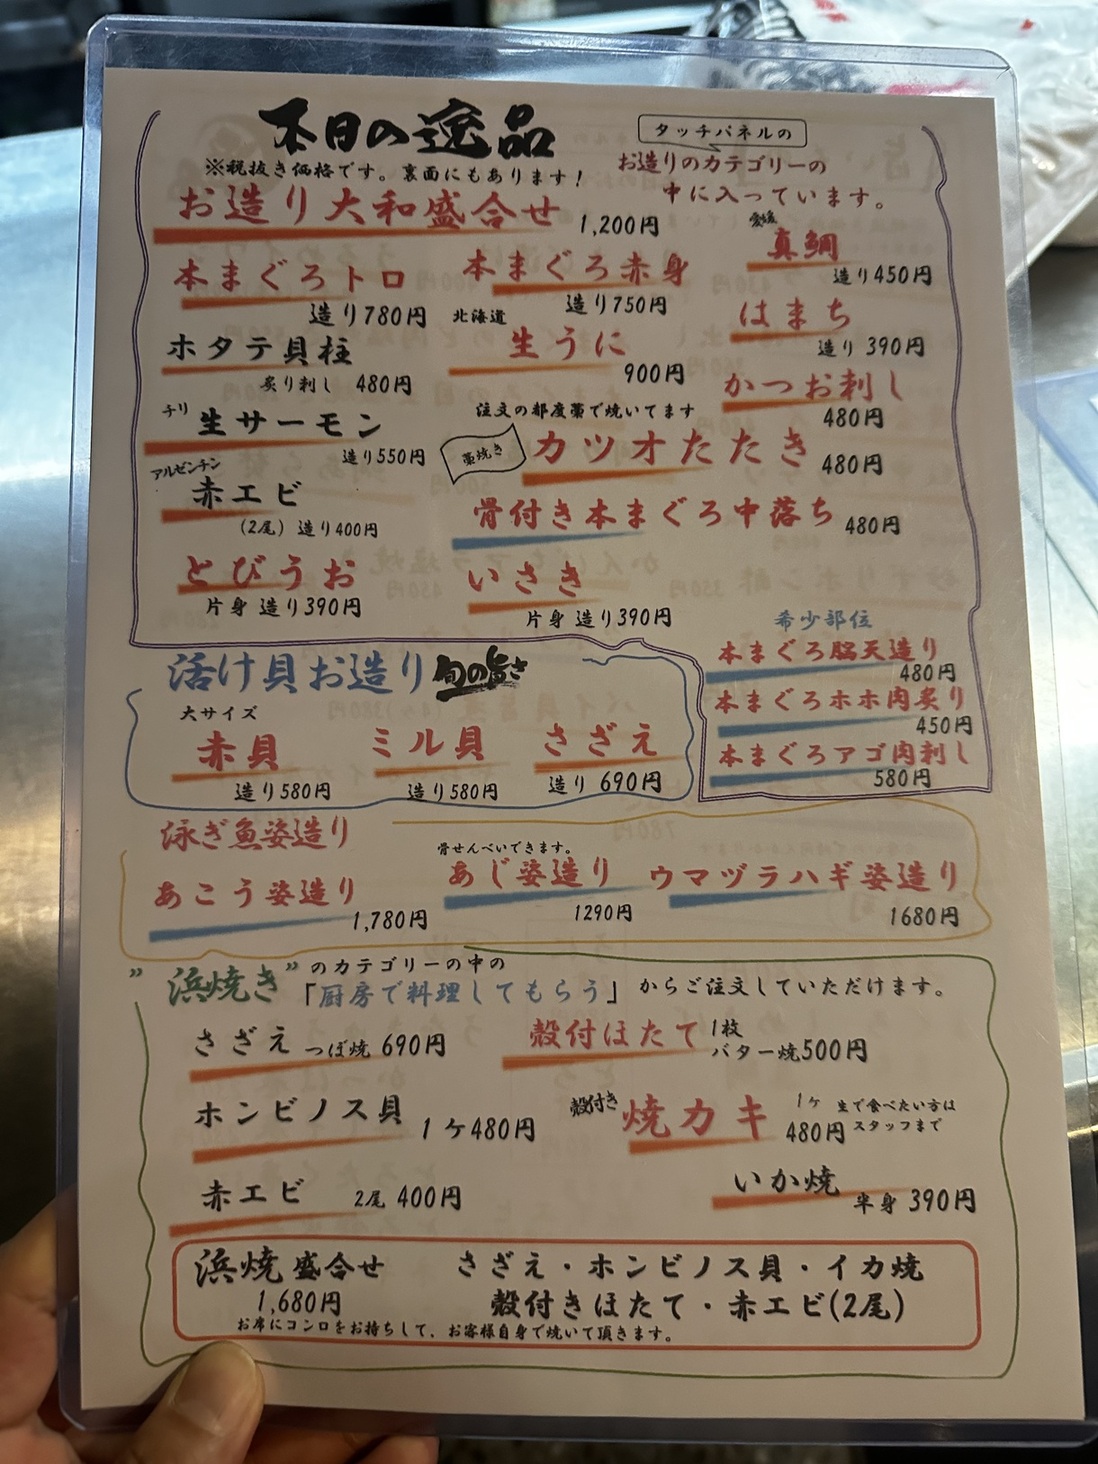 本日の逸品
※税抜き価格です。裏面にもあります！
タッチパネルの
お造りのカテゴリーの
中に入っています。
お造り大和盛合せ 1,200円
愛媛
真鯛
造り450円
本まぐろトロ
造り780円
本まぐろ赤身
造り750円
はまち
造り 390円
ホタテ貝柱
炙り刺し 480円
北海道
生うに
900円
かつお刺し
480円
チリ
生サーモン
造り550円
注文の都度藁で焼いてます
藁焼き
カツオたたき 480円
アルゼンチン
赤エビ
(2尾) 造り400円
骨付き本まぐろ中落ち 480円
とびうお
片身 造り390円
いさき
片身 造り390円
希少部位
本まぐろ脳天造り
480円
本まぐろホホ肉炙り
450円
本まぐろアゴ肉刺し
580円
活け貝お造り 旬の旨さ
大サイズ
赤貝
造り580円
ミル貝
造り580円
さざえ
造り 690円
泳ぎ魚姿造り
あこう姿造り
1,780円
骨せんべいできます。
あじ姿造り
1290円
ウマヅラハギ姿造り
1680円
”浜焼き”のカテゴリーの中の
「厨房で料理してもらう」からご注文していただけます。
さざえ つぼ焼 690円
殻付ほたて 1枚
バター焼500円
ホンビノス貝 1ケ480円
殻付き 焼カキ 1ケ
480円
生で食べたい方は
スタッフまで
赤エビ 2尾 400円
いか焼
半身 390円
浜焼 盛合せ
1,680円
さざえ・ホンビノス貝・イカ焼
殻付きほたて・赤エビ(2尾)
お席にコンロをお持ちして、お客様自身で焼いて頂きます。